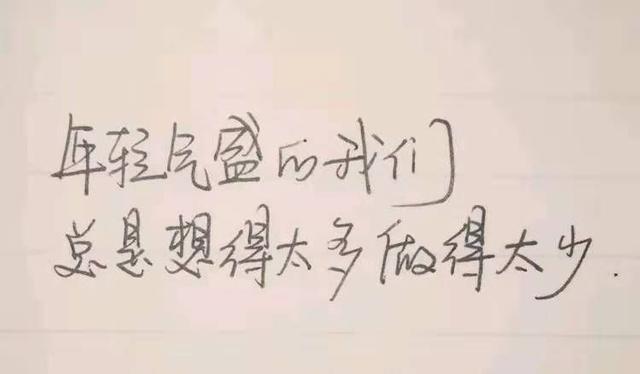 年轻气盛的我们
总是想得太多做得太少.